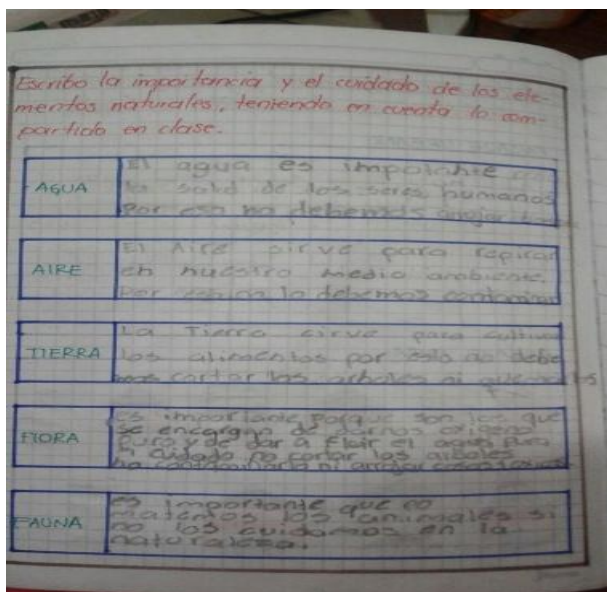 Escribo la importancia y el cuidado de los ele-
mentos naturales, teniendo en cuenta lo com-
partido en clase.
AGUA
El agua es importante
la salud de los seres humanos
Por eso no debemos arrojar
AIRE
El Aire sirve para repirar
en nuestro medio ambiente.
Por no lo debemos contaminar
TIERRA
La Tierra sirve para cultivar
los alimentos por esto no debe
mos cortar los arboles ni quemarlos
FLORA
es importante porque son los que
se encargan de darnos oxigeno
puro y de dar a el agua pura
cuidado no cortar los arboles
no contaminarla ni arrojar cosas
FAUNA
es importante que no
matemos los animales si
no los cuidamos en la
naturalesa.